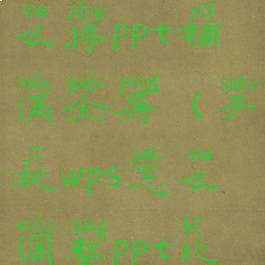 me jiāng pū
么将ppt铺
mǎn quán píng shǒu
满全屏（手
jī zěn me
机wps怎么
tiáo zhěng bǐ
调整ppt比